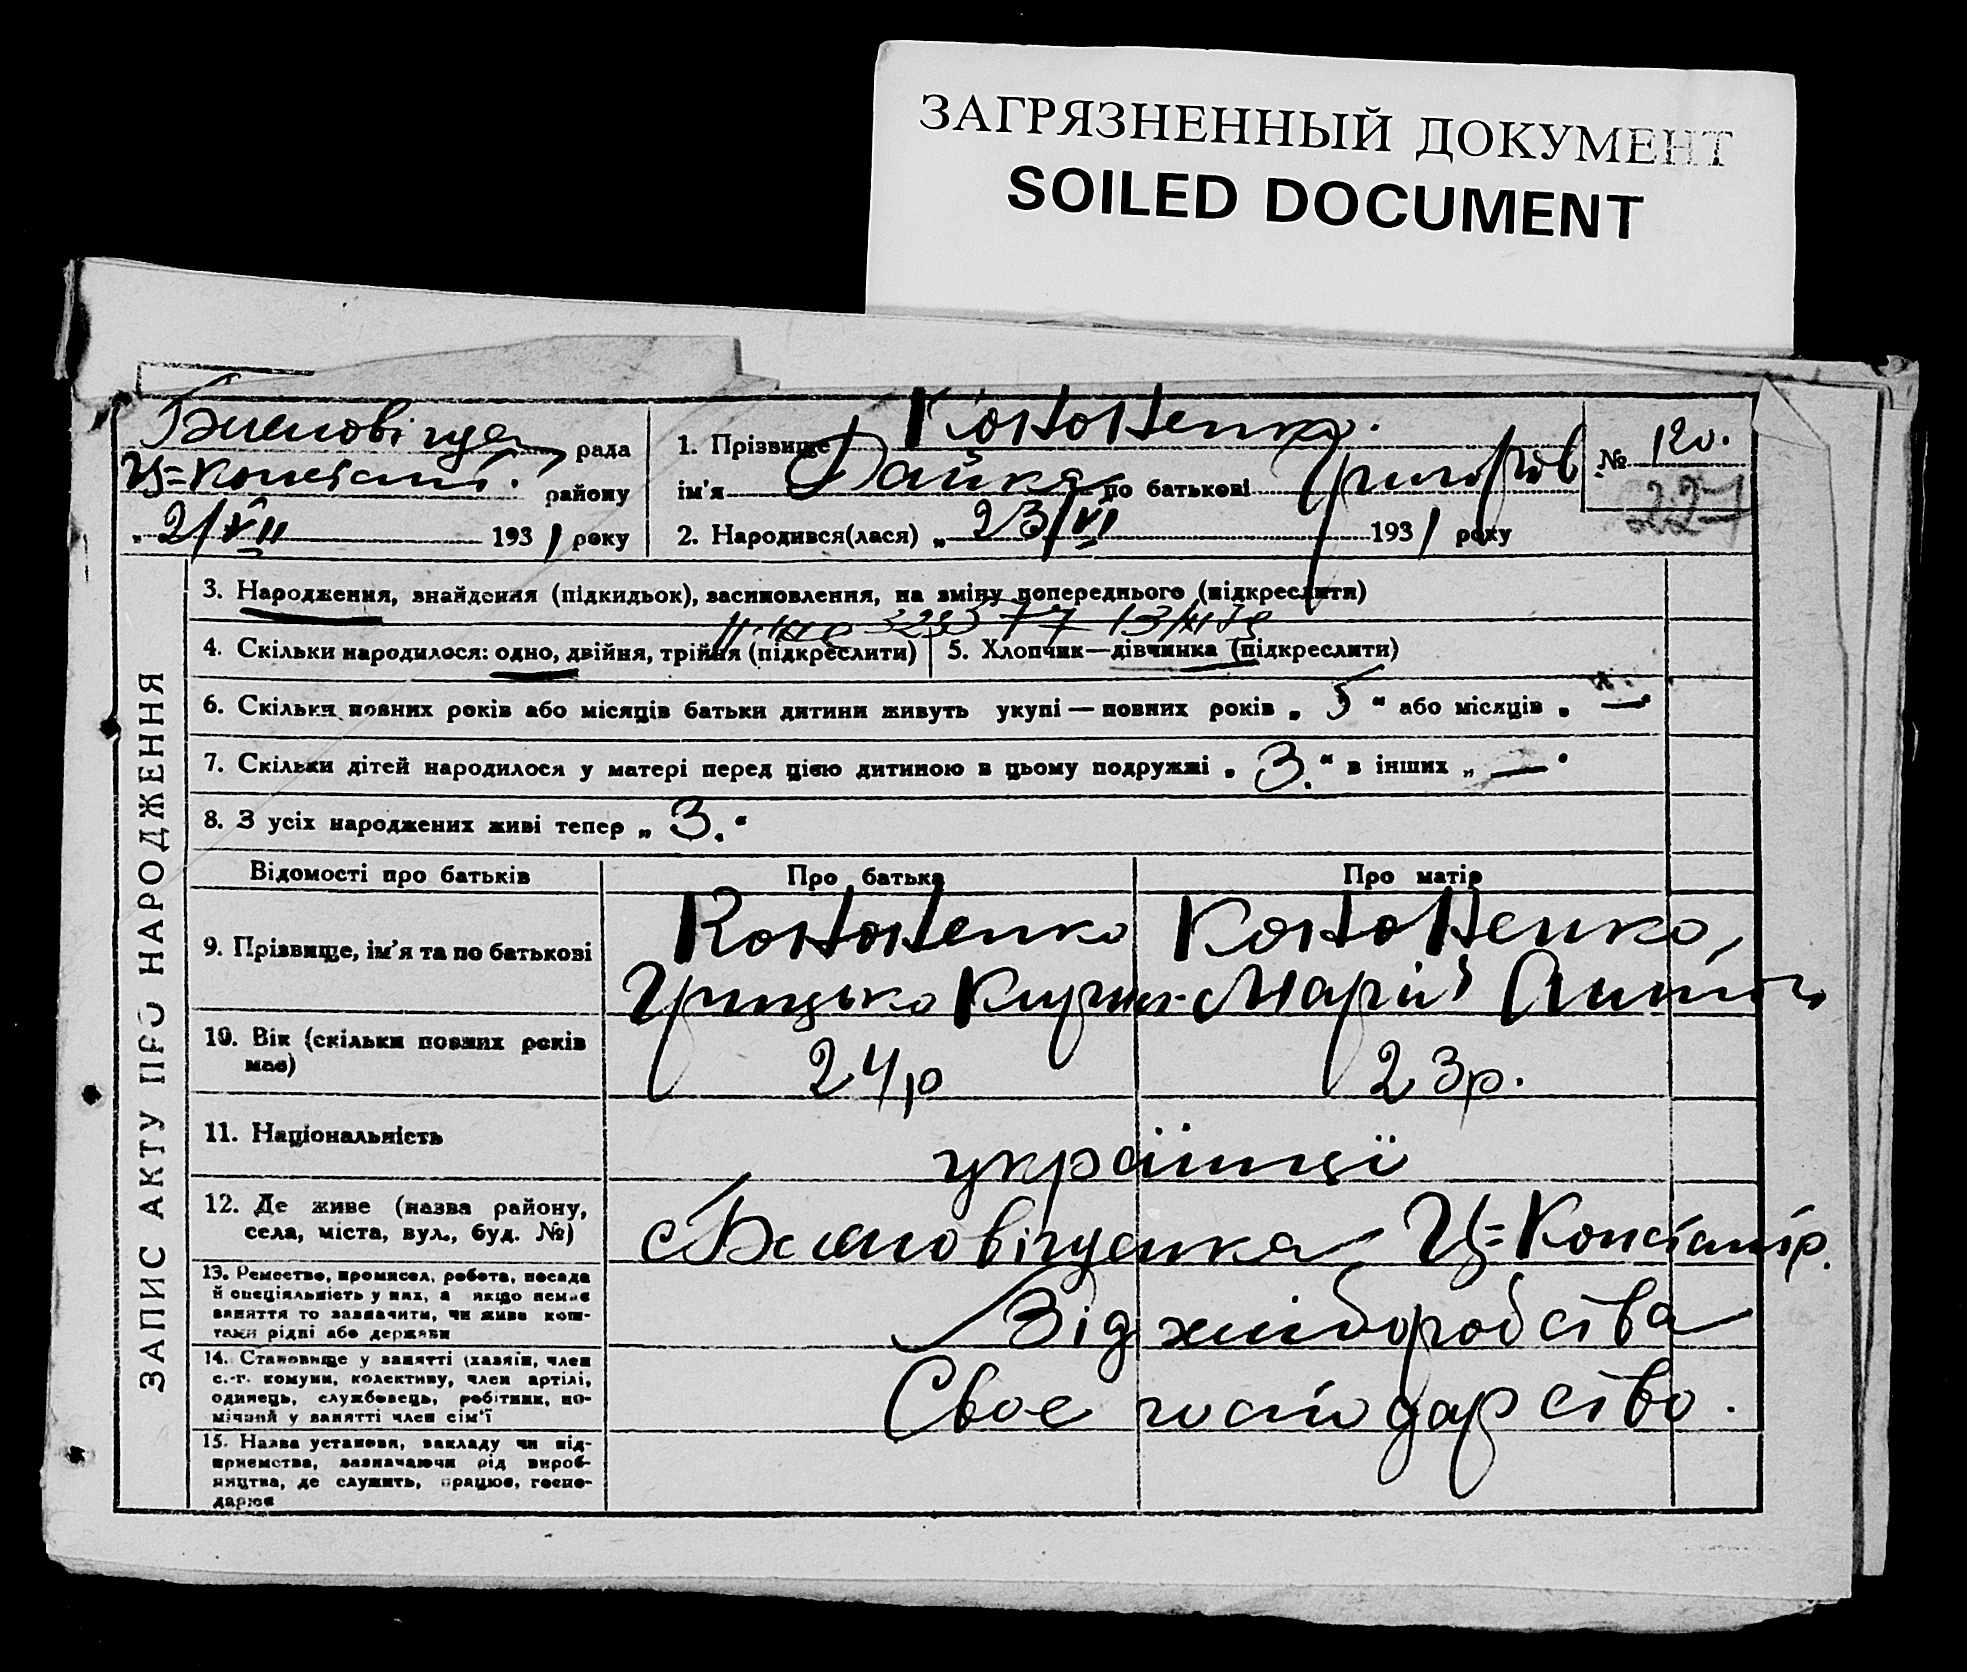 ЗАГРЯЗНЕННЫЙ ДОКУМЕНТ
SOILED DOCUMENT
рада
Ц=Констант. району
„ 2/VII 1931 року
1. Прізвище Кононенко.
ім'я по батькові Григоров
2. Народився(лася) „ 23/VI 1931 року
№ 120.
227
ЗАПИС АКТУ ПРО НАРОДЖЕННЯ
3. Народження, знайдення (підкидьок), засиновлення, на зміну попереднього (підкреслити)
4. Скільки народилося: одно, двійня, трійня (підкреслити)
5. Хлопчик—дівчинка (підкреслити)
6. Скільки повних років або місяців батьки дитини живуть укупі — повних років „ 5 “ або місяців „ —
7. Скільки дітей народилося у матері перед цією дитиною в цьому подружжі „ 3. “ в інших „ — “
8. З усіх народжених живі тепер „ 3. “
Відомості про батьків
Про батька
Про матір
9. Прізвище, ім'я та по батькові
Кононенко
Грицько Кирил.
Кононенко,
Марія
10. Вік (скільки повних років має)
24р
23р.
11. Національність
українці
12. Де живе (назва району,
села, міста, вул., буд. №)
Ц=Констант р.
13. Ремество, промисел, робота, посада
й спеціяльність у них, а якщо немає
заняття то зазначити, чи живе кош-
тами рідні або держави
Від хліборобства
14. Становище у занятті (хазяїн, член
с.-г. комуни, колективу, член артілі,
одинець, службовець, робітник, по-
мічний у занятті член сім'ї
Своє господарство.
15. Назва установи, закладу чи під-
приємства, зазначаючи рід вироб-
ництва, де служить, працює, госпо-
дарює